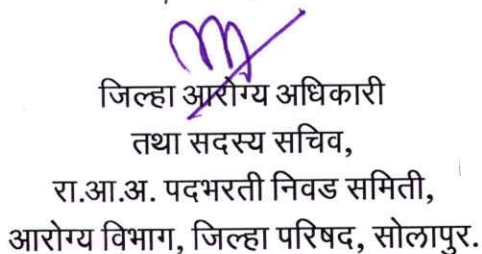 जिल्हा आरोग्य अधिकारी
तथा सदस्य सचिव,
रा.आ.अ. पदभरती निवड समिती,
आरोग्य विभाग, जिल्हा परिषद, सोलापुर.